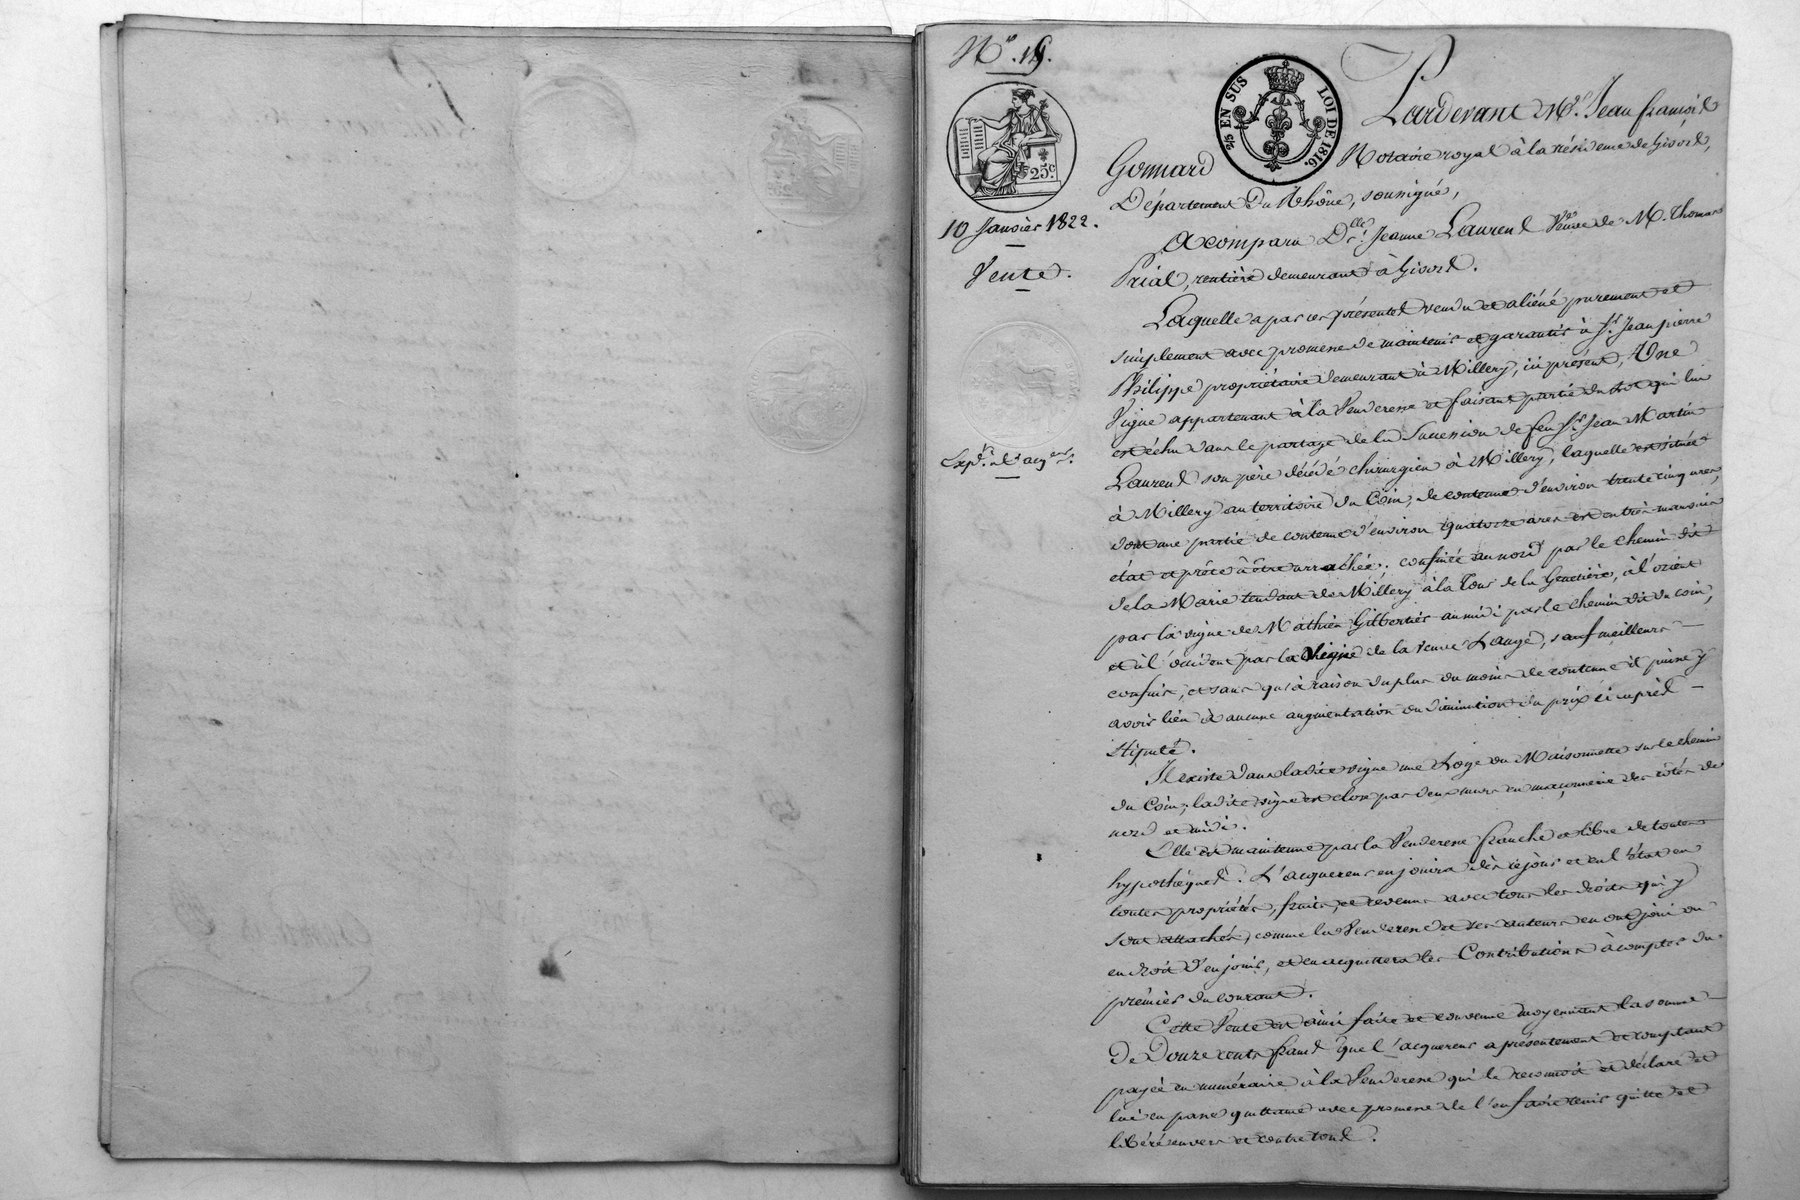 N° 19.
2/5 EN SUS LOI DE 1816.
25c.
10 Janvier 1822.
Vente.
Expn. à l'acqr.
Pardevant Me. Jean françois
Gonnard Notaire royal à la résidence de Givors,
Département Du Rhône, soussigné,
A comparu Dlle. Jeanne Laurend Veuve de M. Thomas
Prial, rentière demeurant à Givors.
Laquelle a par ces présentes vendu et aliéné purement et
simplement avec promesse de maintenir et garantir à Sr. Jean pierre
Philippe propriétaire demeurant à Millery, ici présent, Une
Vigne appartenant à la Venderesse et faisant partie du lot qui lui
est échu dans le partage de la Succession de feu Sr. Jean Martin
Laurend son père décédé chirurgien à Millery, laquelle est située
à Millery au territoire du Coin, de contenue d'environ trente cinq ares,
dont une partie de contenue d'environ quatorze ares est en très mauvais
état et prête à être arrachée. confinée au nord par le chemin dit
de la Marie tendant de Millery à la Tour de la Genetière, à l'orient
par la vigne de Mathieu Gilbertier au midi par le chemin dit du coin,
et à l'occident par la Vigne de la veuve Laugé, sauf meilleurs
confins, et sans qu'à raison du plus ou moins de contenue il puisse y
avoir lieu à aucune augmentation ou diminution du prix ci après
stipulé.
Il existe dans ladite vigne une Loge ou Maisonnette sur le chemin
du Coin; ladite vigne est close par deux murs en maçonnerie des côtés de
nord et midi.
Elle est maintenue par la Venderesse franche et libre de toutes
hypothèques. L'acquereur en jouira dès ce jour et en l'état en
toutes propriétés, fruits, et revenus avec tous les droits qui y
sont attachés, comme la Venderesse et ses auteurs en ont joui ou
eu droit d'en jouir, et en acquittera les Contributions à compter du
premier du courant.
Cette Vente est ainsi faite et convenue moyennant la somme
De Douze cents francs que l'acquereur a présentement et comptant
payée en numéraire à la Venderesse qui le reconnoit et déclare et
lui en passe quittance avec promesse de l'en faire tenir quitte et
libéré envers et contre tous.